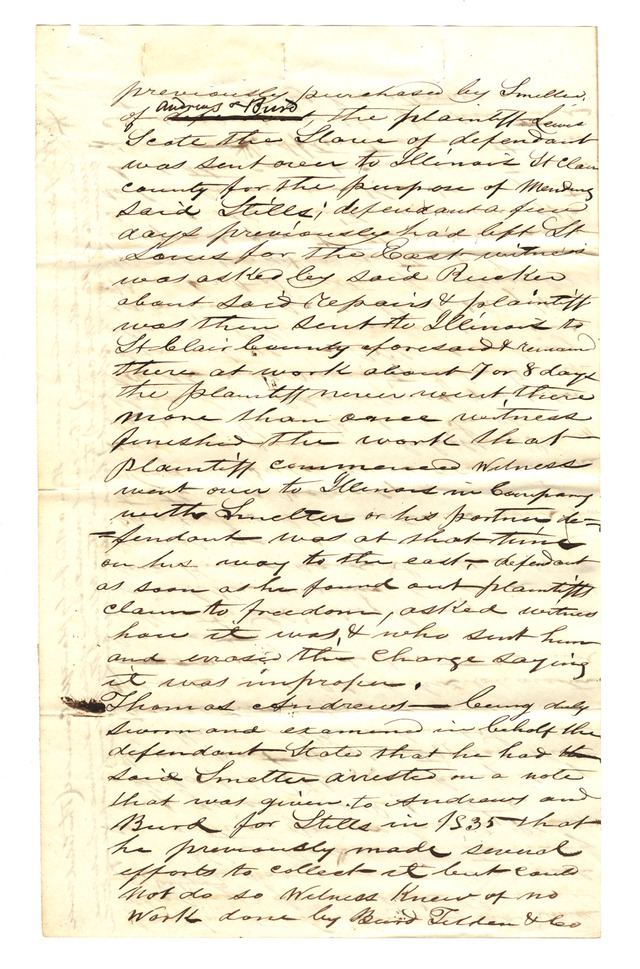 previously purchased by Smelter
of Andrews & Burd the plaintiff Lewis
Scote the Slave of defendant
was sent over to Illinois St Clair
county for the purpose of Mending
said Stills; defendant a few
days previously had left St
Louis for the East witness
was asked by said Rucker
about said repairs & plaintiff
was then sent to Illinois to
St Clair County aforesaid & remain
there at work about 7 or 8 days
the plaintiff never went there
more than once witness
finished the work that
plaintiff commenced Witness
went over to Illinois in Company
with Smelter or his partner de=
=fendant was at that time
on his way to the east, defendant
as soon as he found out plaintiffs
claim to freedom, asked witness
how it was, & who sent him
and erased the Charge saying
it was improper.
Thomas Andrews being duly
sworn and examined in behalf the
defendant Stated that he had
said Smelter arrested on a note
that was given to Andrews and
Burd for Stills in 1835 & that
he previously made several
efforts to collect it but could
not do so Witness Knew of no
Work done by Burd Tilden & Co